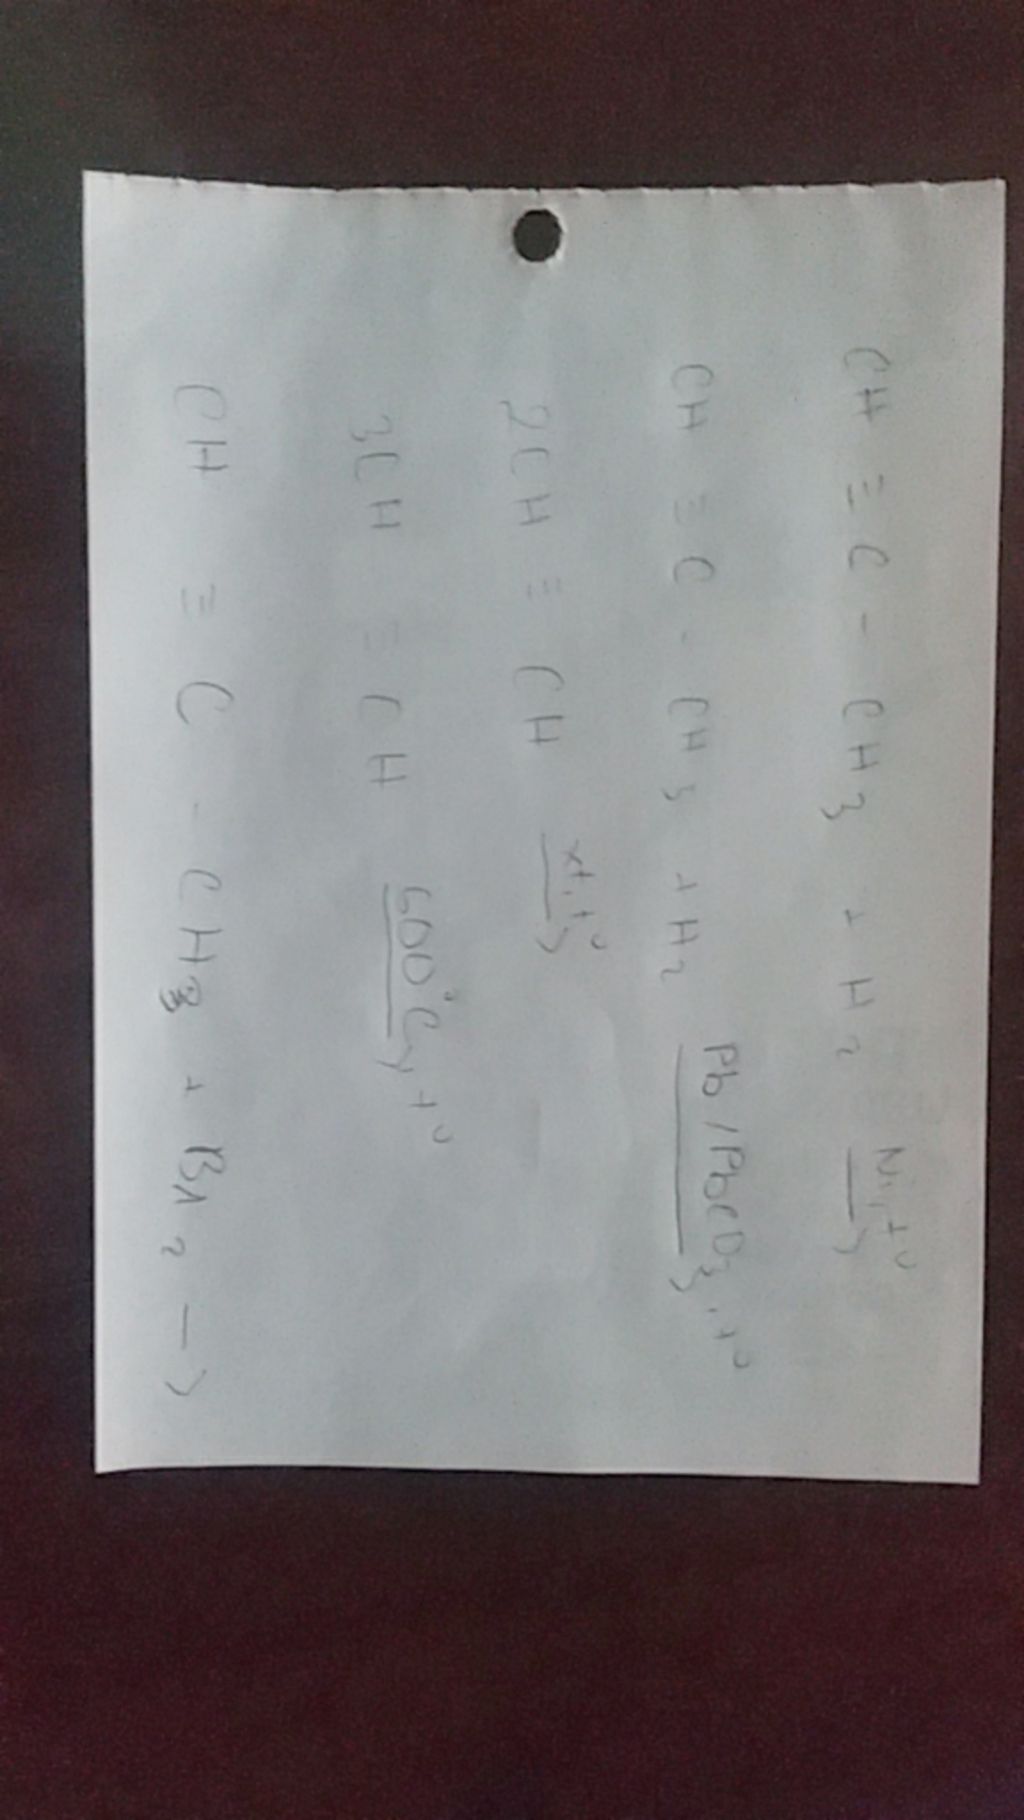 CH ≡ C - CH3 + H2 Ni, t° →
CH ≡ C - CH3 + H2 Pb/PbCO3, t° →
2CH ≡ CH xt, t° →
3CH ≡ CH 600°C, t° →
CH ≡ C - CH3 + Br2 →